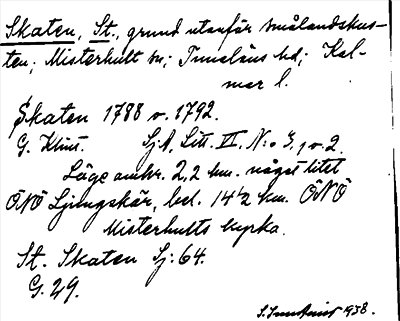 Skaten, St., grund utanför Smålandskus-
ten; Misterhult sn; Tunaläns hd; Kal-
mar l.
Skaten 1788 o. 1792.
G. Klint. Sj A, Litt. VI, N:o 3, 1 o. 2.
Läge omkr. 2,2 km. något litet
ÖNÖ Ljungskär, bel. 14 1/2 km. ÖNÖ
Misterhults kyrka.
St. Skaten Sj: 64.
G. 29.
1938.